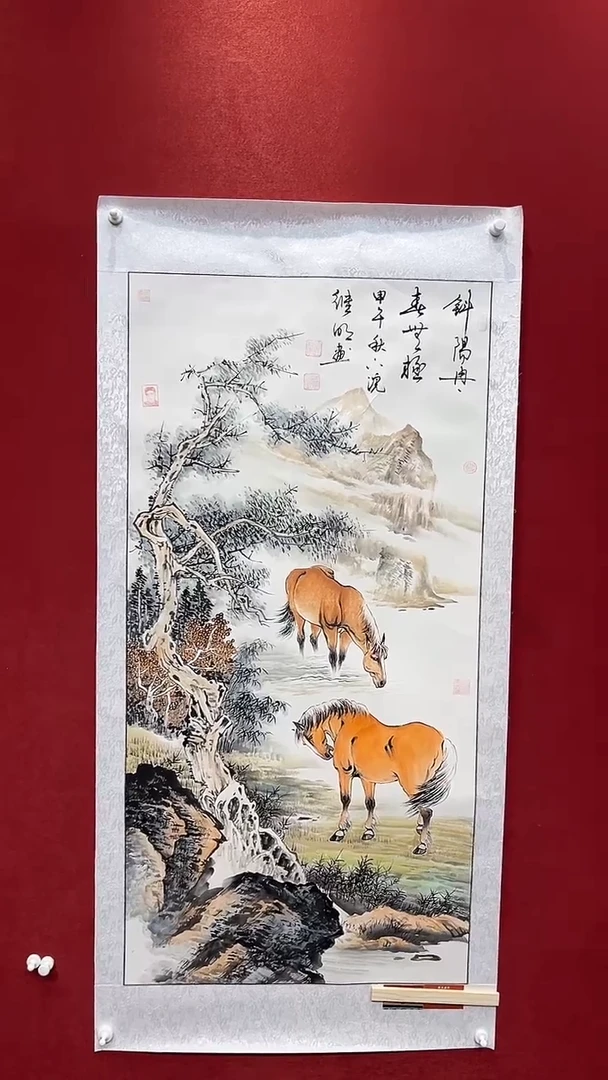 斜陽冉々
春無極
甲午秋
继明画